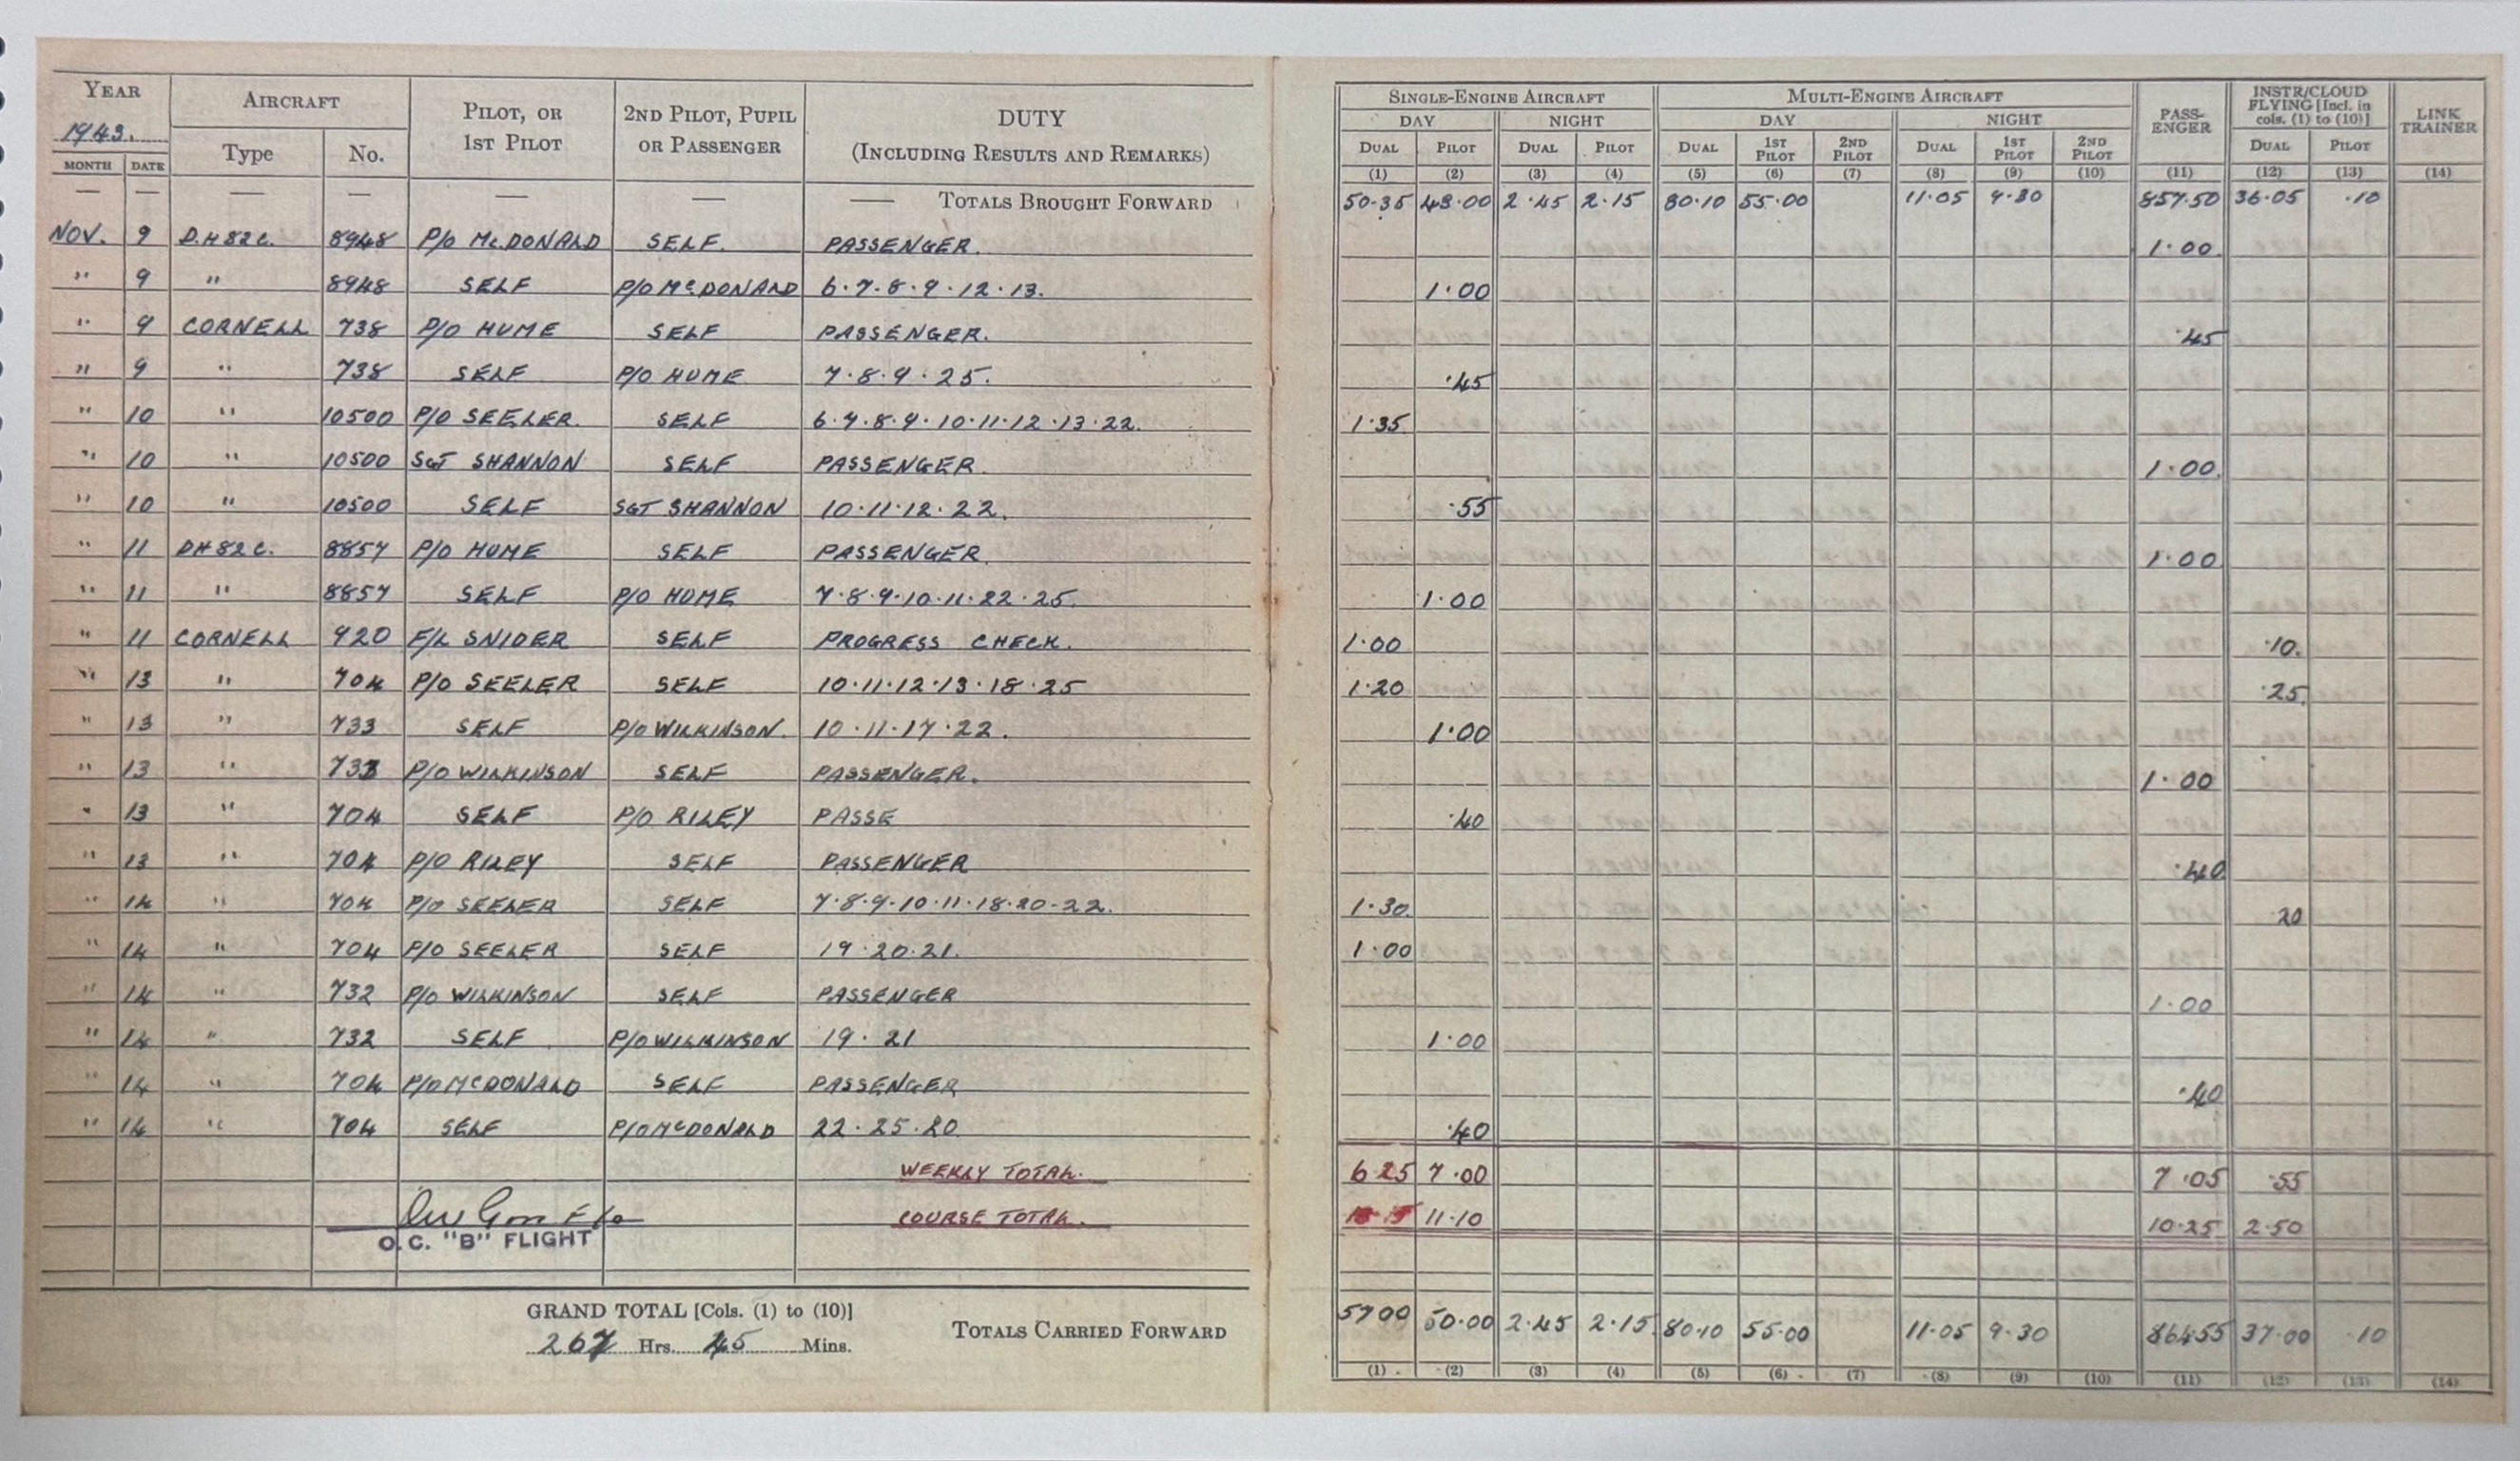 YEAR AIRCRAFT PILOT, OR 1ST PILOT 2ND PILOT, PUPIL OR PASSENGER DUTY (INCLUDING RESULTS AND REMARKS) SINGLE-ENGINE AIRCRAFT MULTI-ENGINE AIRCRAFT PASS-ENGER INSTR/CLOUD FLYING [Incl. in cols. (1) to (10)] LINK TRAINER
1943. DAY NIGHT DAY NIGHT
MONTH DATE Type No. DUAL PILOT DUAL PILOT DUAL 1ST PILOT 2ND PILOT DUAL 1ST PILOT 2ND PILOT DUAL PILOT
(1) (2) (3) (4) (5) (6) (7) (8) (9) (10) (11) (12) (13) (14)
— — — — — — — TOTALS BROUGHT FORWARD 50.35 43.00 2.45 2.15 80.10 55.00 11.05 9.30 857.50 36.05 .10
NOV. 9 D.H 82 C. 8948 P/O McDONALD SELF. PASSENGER. 1.00
" 9 " 8948 SELF P/O McDONALD 6.7.8.9.12.13. 1.00
" 9 CORNELL 738 P/O HUME SELF PASSENGER. .45
" 9 " 738 SELF P/O HUME 7.8.9.25. .45
" 10 " 10500 P/O SEELER. SELF 6.7.8.9.10.11.12.13.22. 1.35
" 10 " 10500 SGT SHANNON SELF PASSENGER 1.00
" 10 " 10500 SELF SGT SHANNON 10.11.12.22. .55
" 11 DH 82 C. 8857 P/O HUME SELF PASSENGER 1.00
" 11 " 8857 SELF P/O HUME 7.8.9.10.11.22.25. 1.00
" 11 CORNELL 720 F/L SNIDER SELF PROGRESS CHECK. 1.00 .10.
" 13 " 704 P/O SEELER SELF 10.11.12.13.18.25 1.20 .25.
" 13 " 733 SELF P/O WILKINSON. 10.11.17.22. 1.00
" 13 " 733 P/O WILKINSON SELF PASSENGER. 1.00
" 13 " 704 SELF P/O RILEY PASSE .40
" 13 " 704 P/O RILEY SELF PASSENGER .40
" 14 " 704 P/O SEELER SELF 7.8.9.10.11.18.20-22. 1.30 20
" 14 " 704 P/O SEELER SELF 19.20.21. 1.00
" 14 " 732 P/O WILKINSON SELF PASSENGER 1.00
" 14 " 732 SELF P/O WILKINSON 19.21 1.00
" 14 " 704 P/O McDONALD SELF PASSENGER .40
" 14 " 704 SELF P/O McDONALD 22.25.20 .40
WEEKLY TOTAL. 6 25 7.00 7.05 .55
COURSE TOTAL. 11.10 10.25 2.50
O.C. "B" FLIGHT
GRAND TOTAL [Cols. (1) to (10)]
267 Hrs. 45 Mins. TOTALS CARRIED FORWARD 57 00 50.00 2.45 2.15 80.10 55.00 11.05 9.30 864 55 37.00 .10
(1) (2) (3) (4) (5) (6) (7) (8) (9) (10) (11) (12) (13) (14)